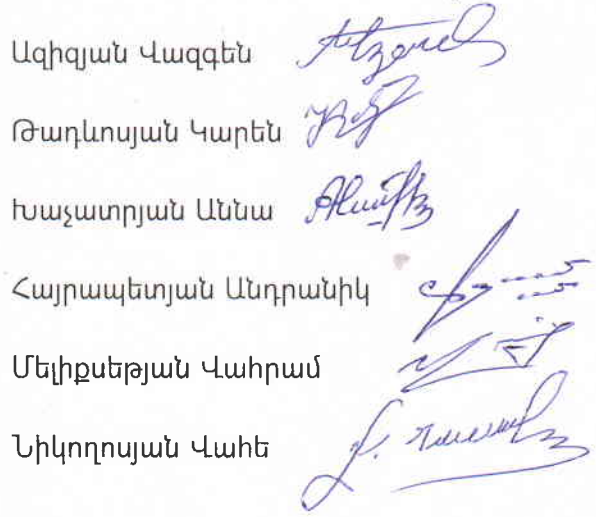 Ազիզյան Վազգեն
Թադևոսյան Կարեն
Խաչատրյան Աննա
Հայրապետյան Անդրանիկ
Մելիքսեթյան Վահրամ
Նիկողոսյան Վահե